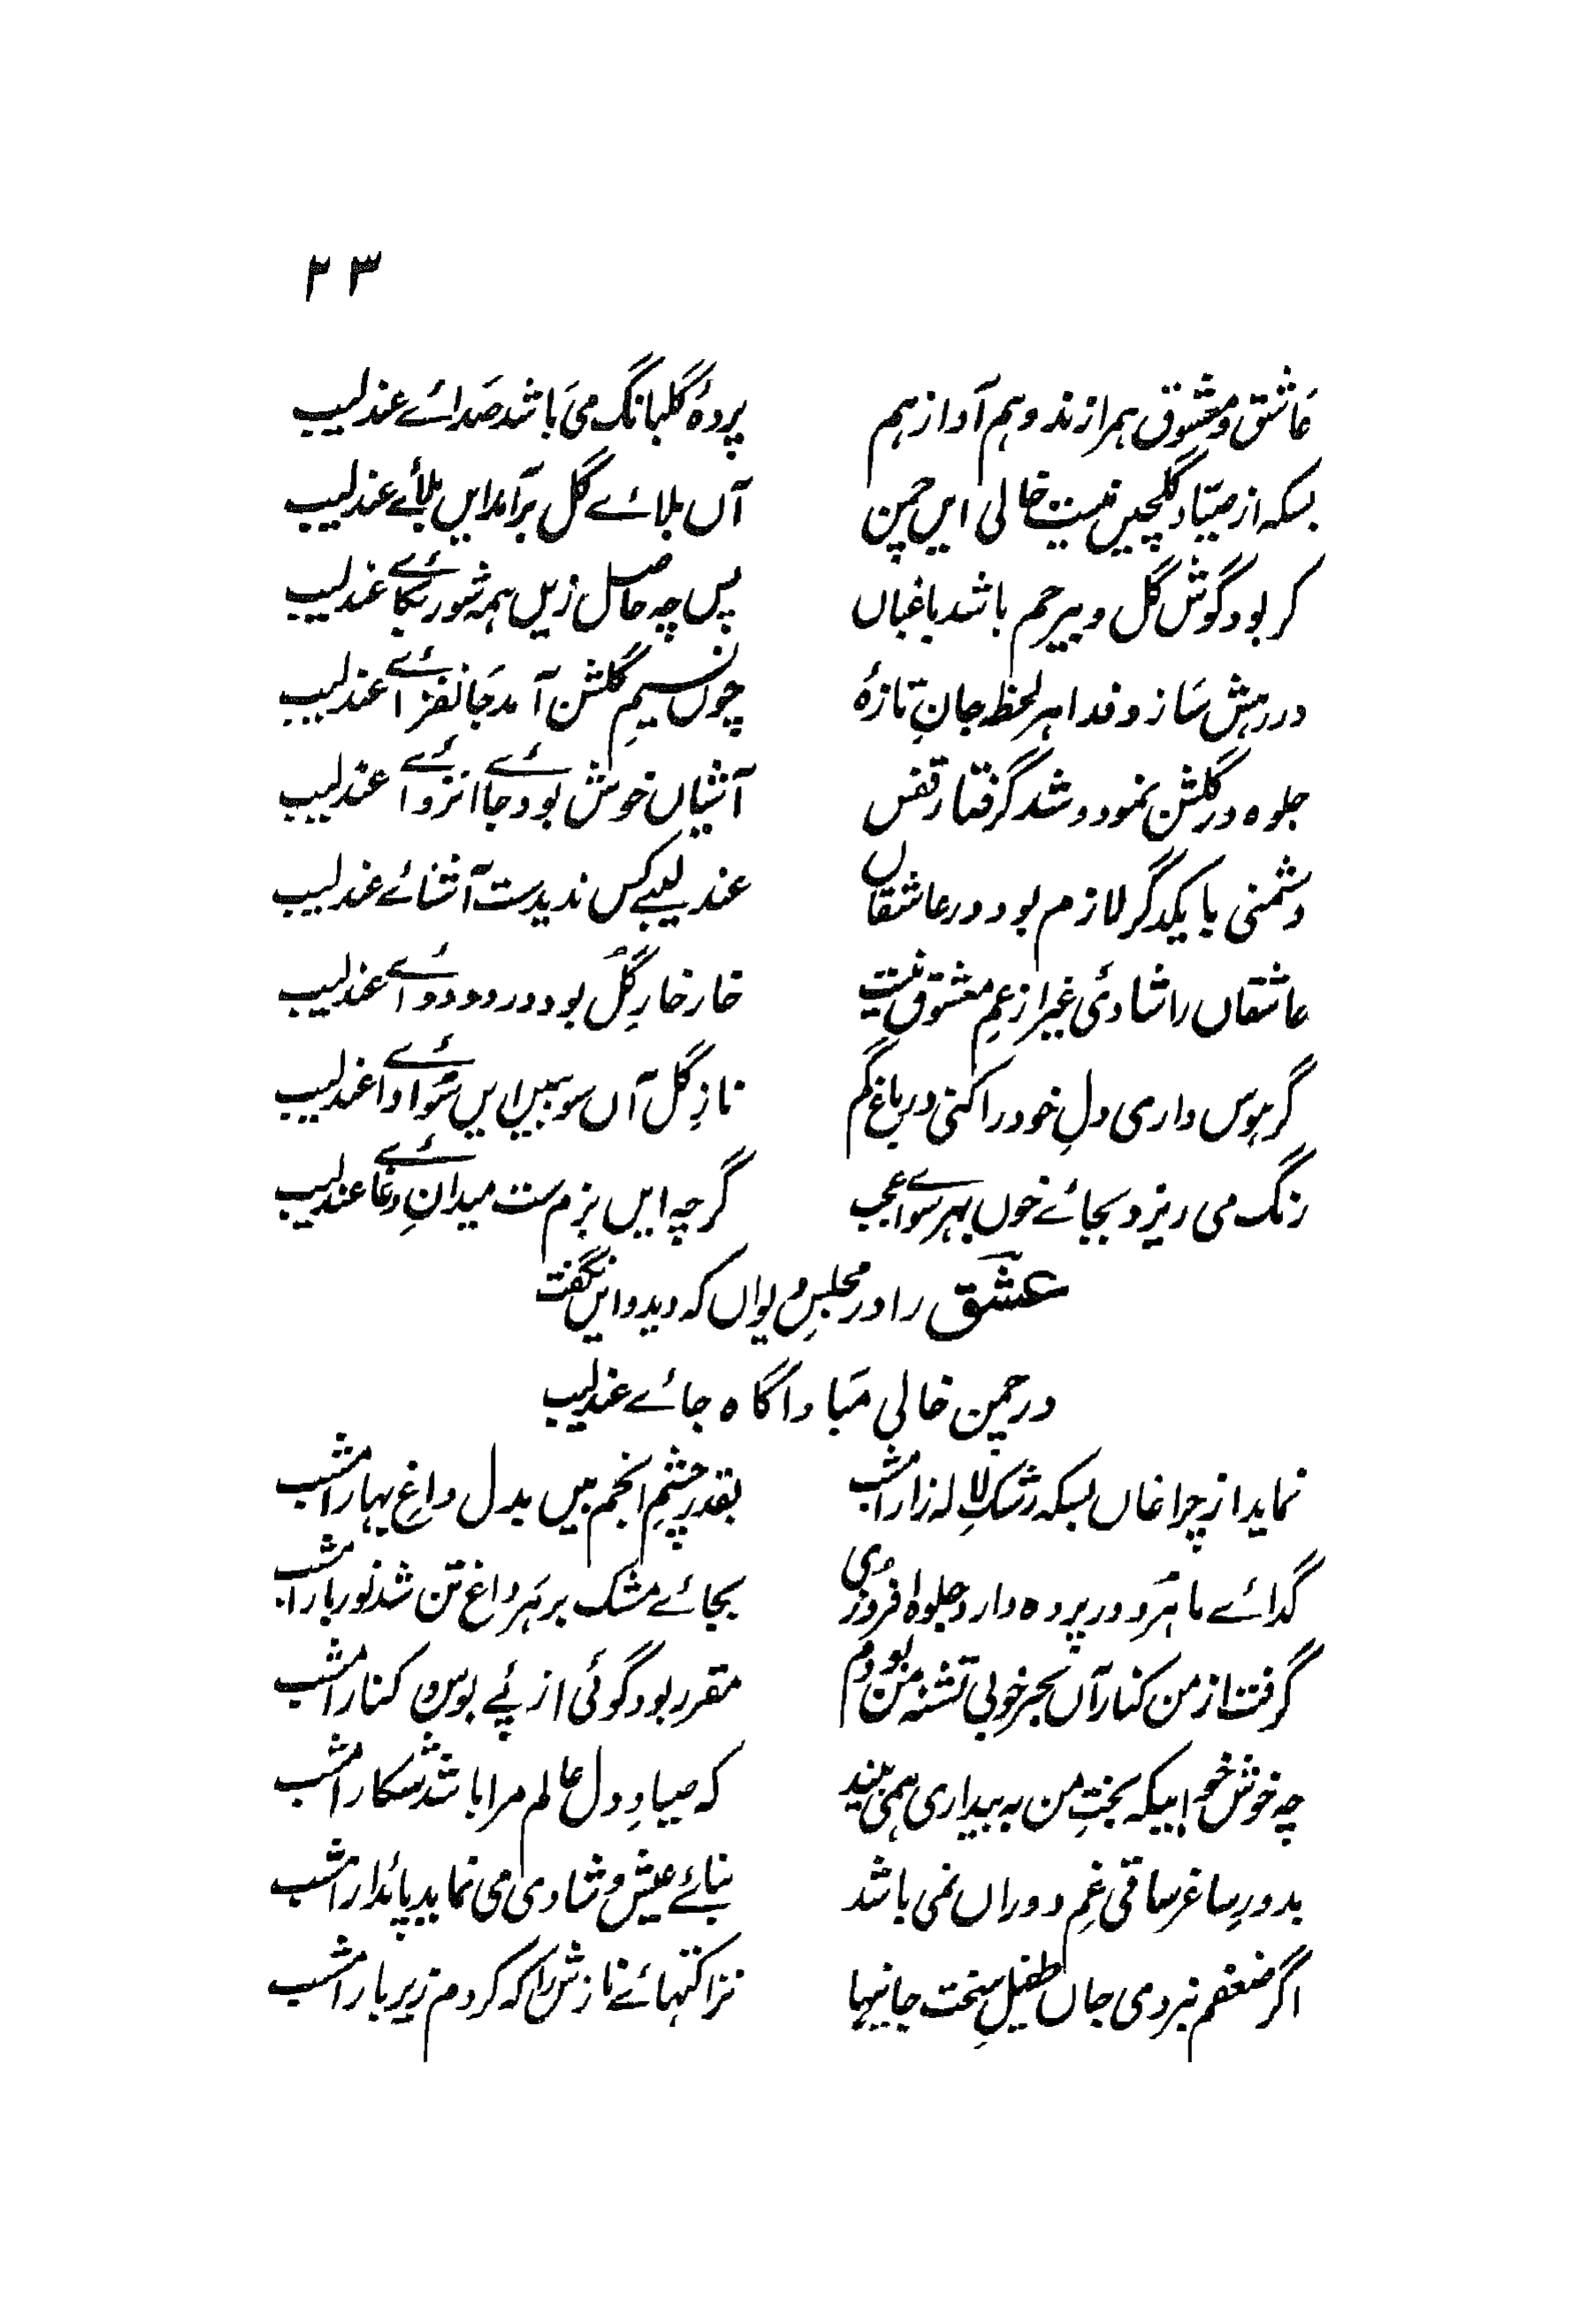 ۲۳
عاشق و معشوق همرازند و هم آواز هم پردهٔ گلبانگ می باشد صدائے عندلیب
بسکه از صیّاد و گلچیں نیست خالی ایں چمن آں بلائے گل برآمد ایں بلائے عندلیب
کر بود گوش گل و بیرحم باشد باغباں پس چه حاصل زیں همه شور بکائے عندلیب
در رهش سازد فدا هر لحظه جانِ تازهٔ چوں نسیمِ گلشن آمد جانفزائے عندلیب
جلوه در گلشن نمود و شد گرفتار قفس آشیاں خوش بود جا انزوائے عندلیب
دشمنی با یکدگر لازم بود در عاشقاں عندلیبے کس ندیدست آشنائے عندلیب
عاشقاں را شادئ غیر از غمِ معشوق نیست خار خارِ گُل بود درد و دوائے عندلیب
گر هوس داری دلِ خود را کنی در باغ گم نازِ گل آں سو ببیں ایں سو ادائے عندلیب
رنگ می ریزد بجائے خوں بهر سوائے عجب گرچه ایں بزم ست میدانِ وغائے عندلیب
عشق را در مجلسِ دیواں که دید و ایں نگفت
در چمن خالی مبادا گاه جائے عندلیب
نماید از چراغاں بسکه رشکِ لاله زار امشب بقدرِ چشمِ انجم بیں بدل داغِ بهار امشب
گدائے ماهرو در پرده دارد جلوه افروزی بجائے مشک بر هر داغ تن شد نور بار امشب
گرفت از من کنار آں بحرِ خوبی تشنه من بودم مقرر بود گوئی از پئے بوس و کنار امشب
چه خوش خوابیکه بختِ من به بیداری همی بیند که صیادِ دل عالم مرا باشد شکار امشب
بدورِ ساغر ساقی غمِ دوراں نمی باشد بنائے عیش و شادی می نماید پائدار امشب
اگر ضعفم نبردی جاں طفیلِ سخت جانیها نزاکتهائے نازش را که کردم زیر بار امشب